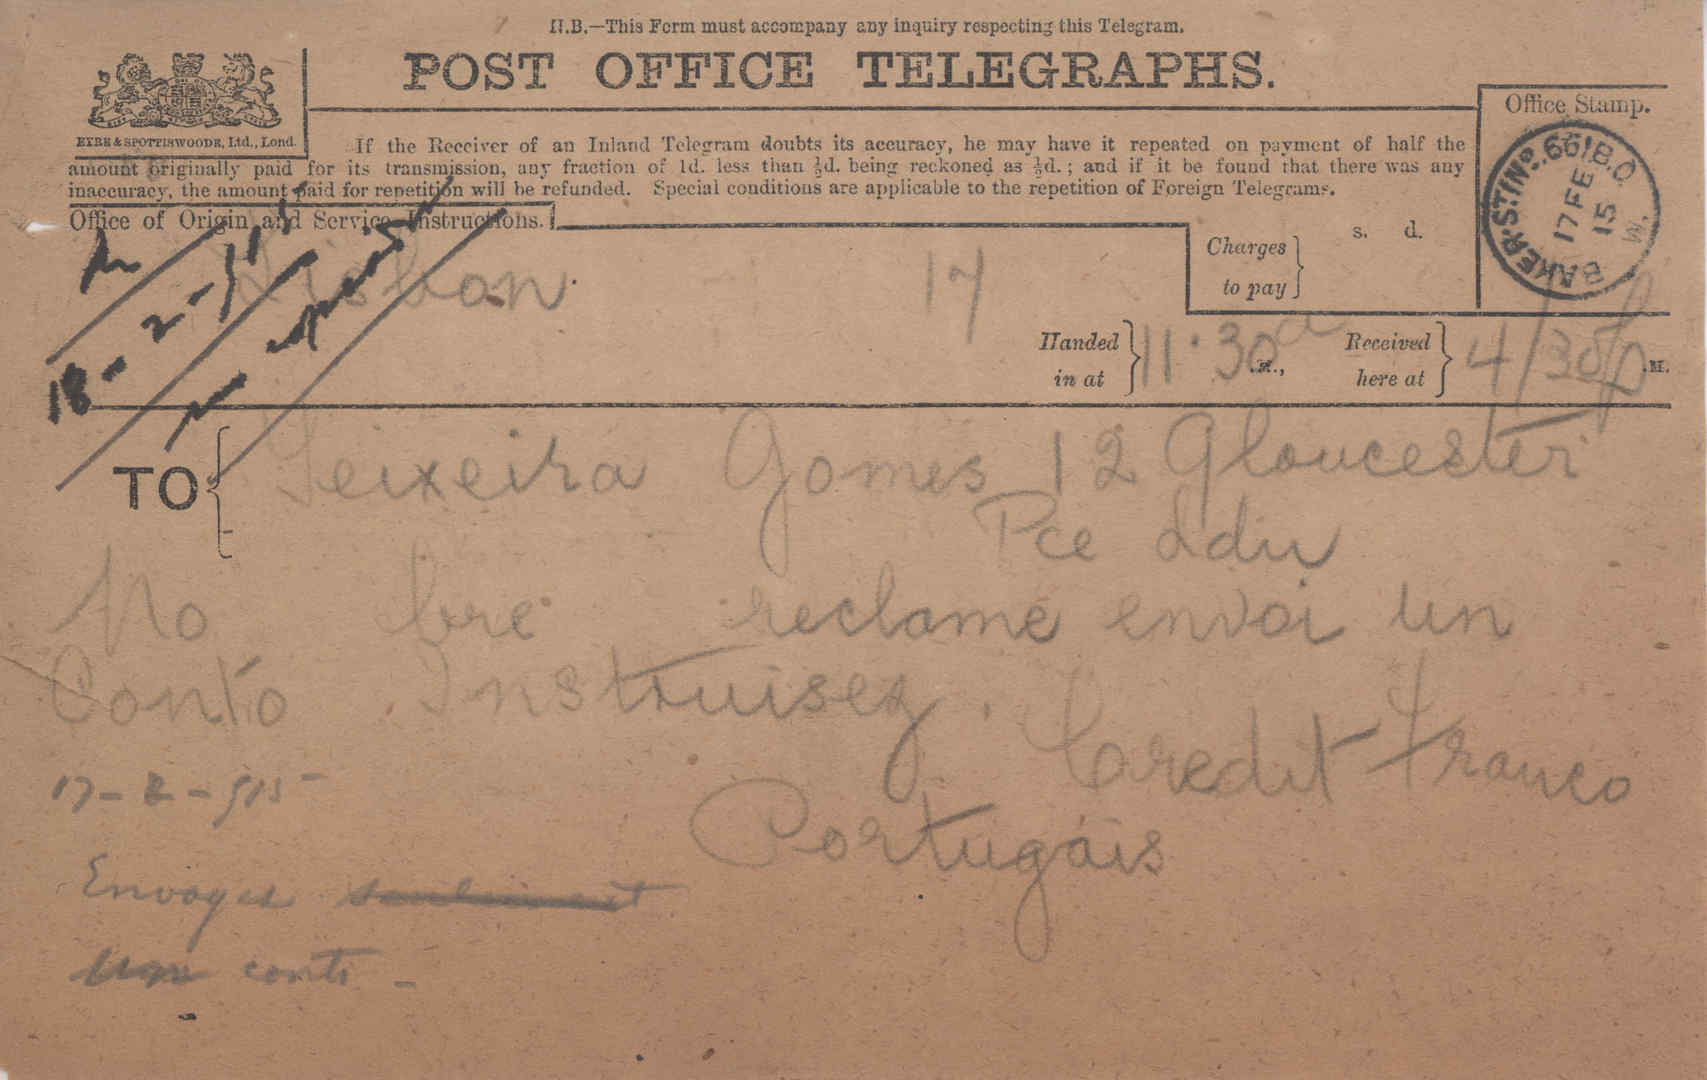 N.B.—This Form must accompany any inquiry respecting this Telegram.
POST OFFICE TELEGRAPHS.
EYRE & SPOTTISWOODE, Ltd., Lond.
If the Receiver of an Inland Telegram doubts its accuracy, he may have it repeated on payment of half the
amount originally paid for its transmission, any fraction of 1d. less than ½d. being reckoned as ½d.; and if it be found that there was any
inaccuracy, the amount paid for repetition will be refunded. Special conditions are applicable to the repetition of Foreign Telegrams.
Office Stamp.
BAKER.ST/No.66/B.O. W.
17 FE
15
Office of Origin and Service Instructions.
Charges to pay
s. d.
Lisbon 17
Handed in at 11.30a .M.,
Received here at 4/30p .M.
18-2-15
TO Teixeira Gomes 12 Gloucester
Pce Ldn
No bre reclame envoi un
Conto Instruisez. Credit Franco
Portugais
17-2-915
Envoyez seulement
un conto -